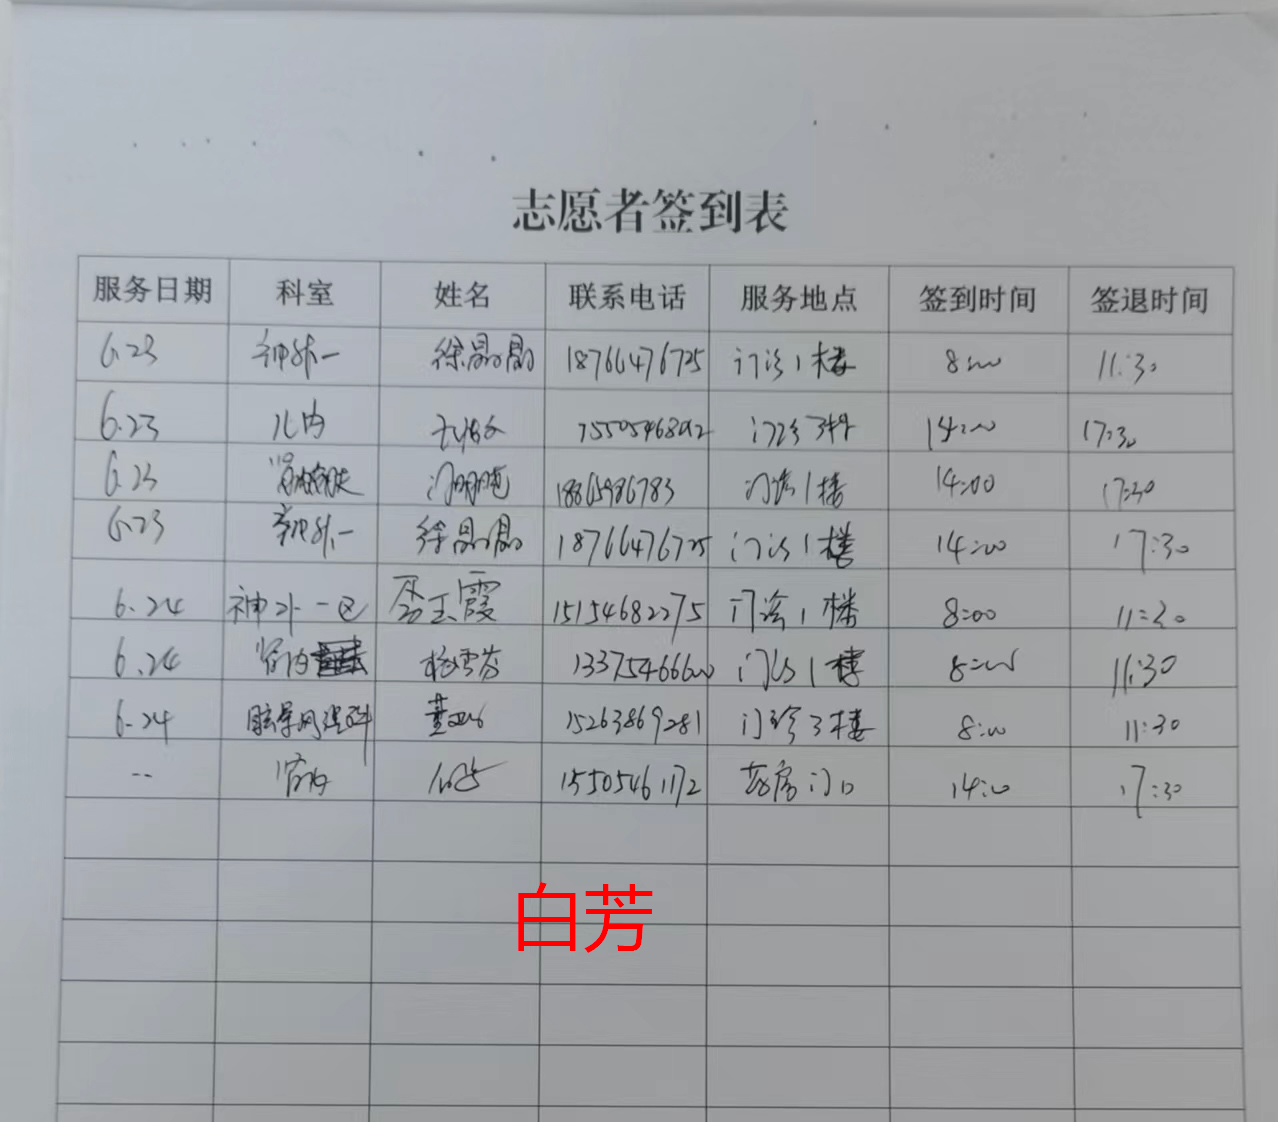 志愿者签到表
服务日期 科室 姓名 联系电话 服务地点 签到时间 签退时间
6.23 神外一 徐晶晶 18766476725 门诊1楼 8:00 11:30
6.23 儿内 14:00 17:30
6.23 18865986783 门诊1楼 14:00 17:30
6.23 神外一 徐晶晶 18766476725 门诊1楼 14:00 17:30
6.24 神外一区 玉霞 15154682275 门诊1楼 8:00 11:30
6.24 肾内 杨雪芬 13375466600 门诊1楼 8:00 11:30
6.24 董 15263869281 门诊3楼 8:00 11:30
-- 肾内 15505461172 药房门口 14:00 17:30
白芳